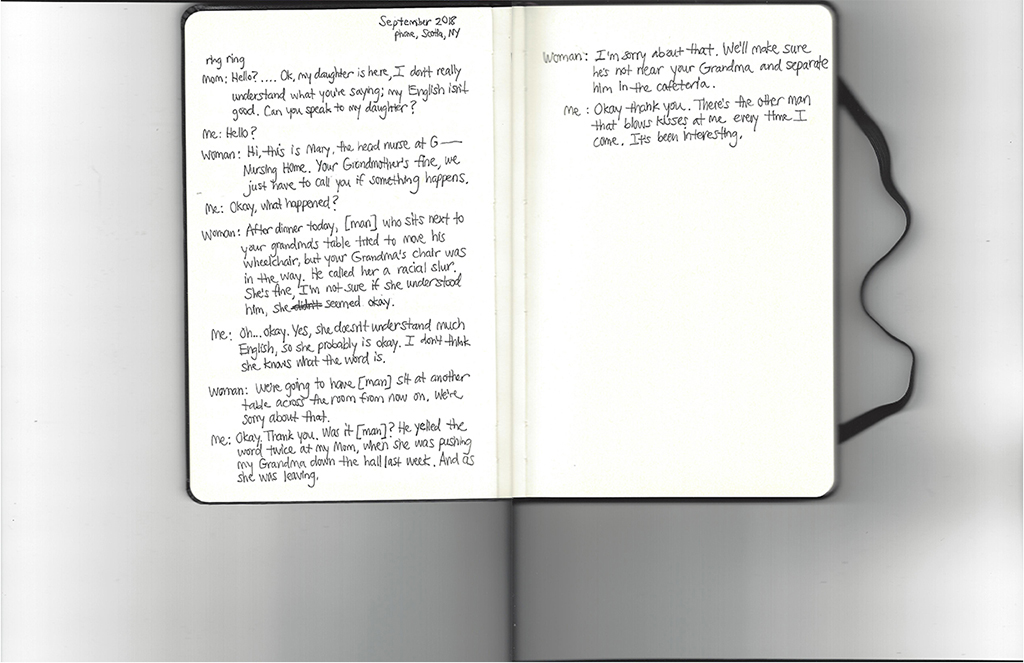 September 2018
phone, Scotia, NY
ring ring
Mom: Hello? .... Ok, my daughter is here, I don't really
understand what you're saying; my English isn't
good. Can you speak to my daughter?
Me: Hello?
Woman: Hi, this is Mary, the head nurse at G——
Nursing Home. Your Grandmother's fine, we
just have to call you if something happens.
Me: Okay, what happened?
Woman: After dinner today, [man] who sits next to
your grandma's table tried to move his
wheelchair, but your Grandma's chair was
in the way. He called her a racial slur.
She's fine, I'm not sure if she understood
him, she didn't seemed okay.
Me: Oh... okay. Yes, she doesn't understand much
English, so she probably is okay. I don't think
she knows what the word is.
Woman: We're going to have [man] sit at another
table across the room from now on. We're
sorry about that.
Me: Okay. Thank you. Was it [man]? He yelled the
word twice at my Mom, when she was pushing
my Grandma down the hall last week. And as
she was leaving.
Woman: I'm sorry about that. We'll make sure
he's not near your Grandma and separate
him in the cafeteria.
Me: Okay thank you. There's the other man
that blows kisses at me every time I
come. It's been interesting.